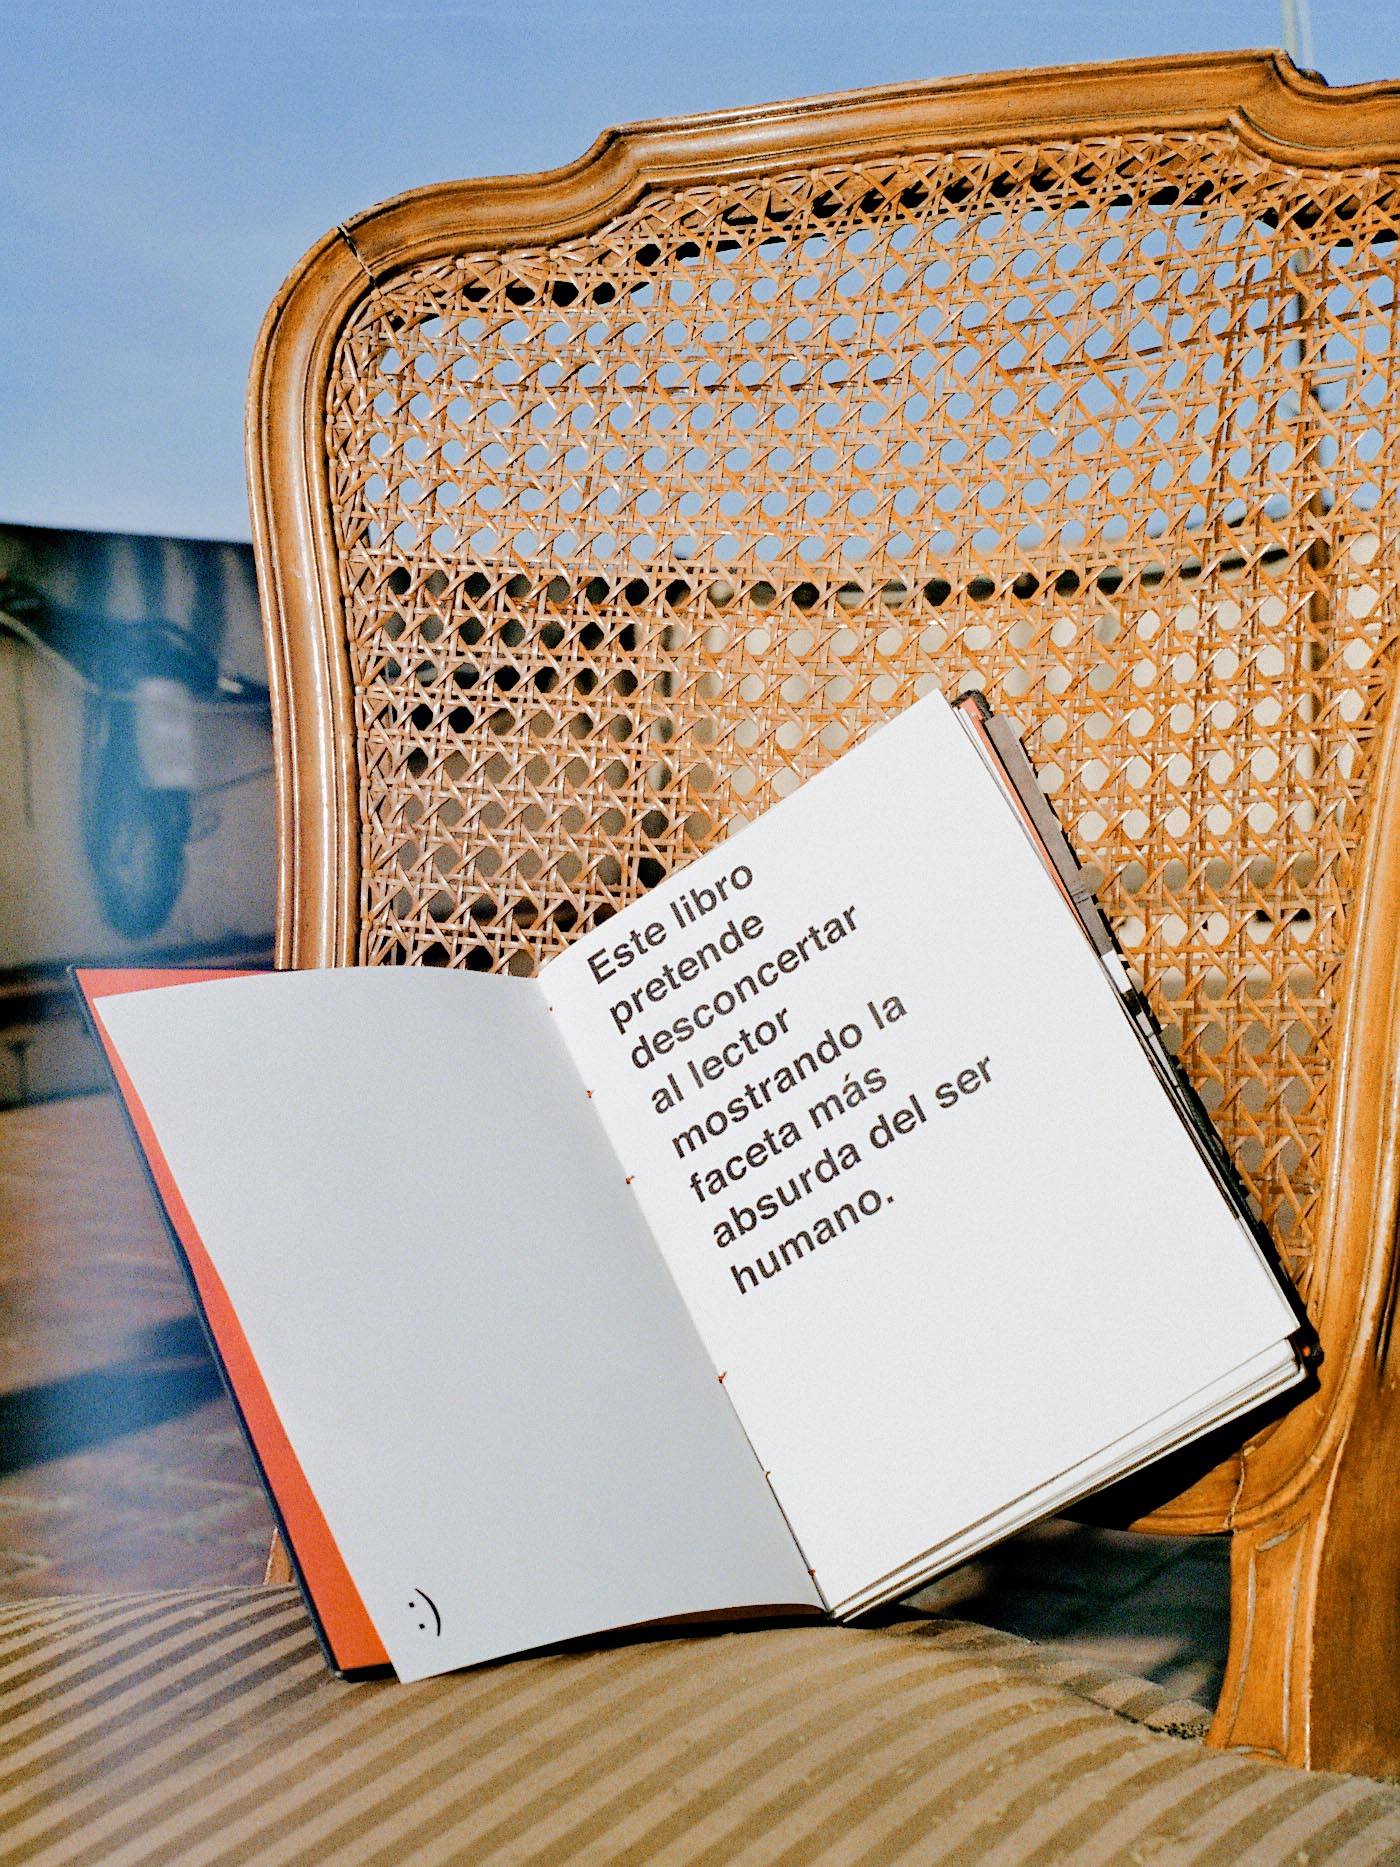 Este libro
pretende
desconcertar
al lector
mostrando la
faceta más
absurda del ser
humano.
:)